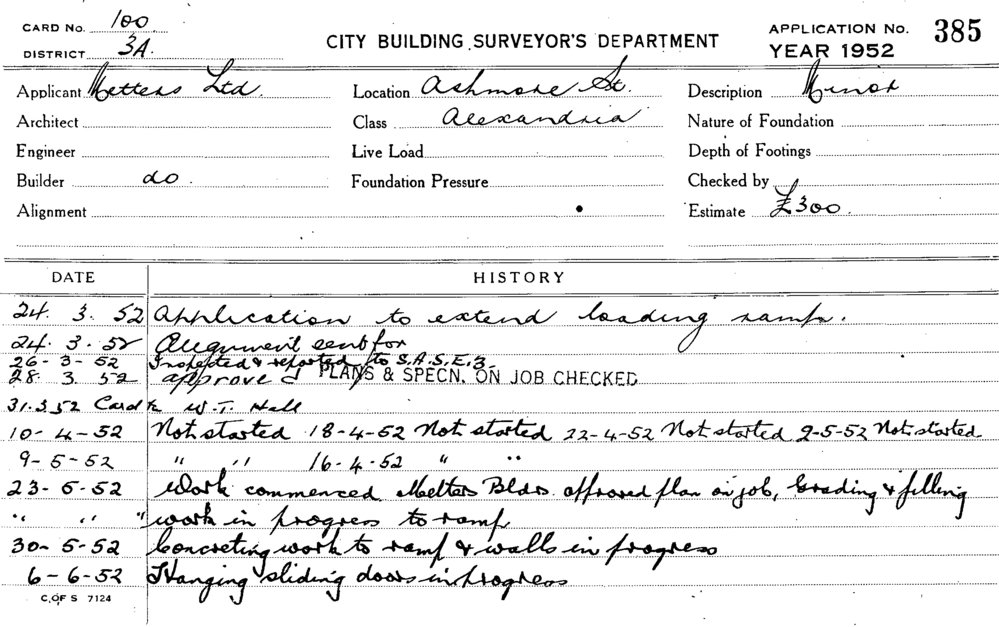 CARD No. 100
DISTRICT 3A
CITY BUILDING SURVEYOR'S DEPARTMENT
APPLICATION No. 385
YEAR 1952
Applicant Metters Ltd. Location Ashmore St. Description Minor
Architect Class Alexandria Nature of Foundation
Engineer Live Load Depth of Footings
Builder do. Foundation Pressure Checked by
Alignment Estimate £300.
DATE HISTORY
24. 3. 52 Application to extend loading ramp.
24. 3. 52 Alignment sent for
26-3-52 Inspected & reported to S.A.S.E.3.
28. 3. 52 approved PLANS & SPECN. ON JOB CHECKED
31.3.52 Card to W.T. Hall
10-4-52 Not started 18-4-52 Not started 22-4-52 Not started 2-5-52 Not started
9-5-52 " " 16-4-52 " "
23-5-52 Work commenced Metters Bldrs. approved plan on job, Grading & filling
" " " work in progress to ramp
30-5-52 Concreting work to ramp & walls in progress
6-6-52 Hanging sliding doors in progress
C. OF S 7124